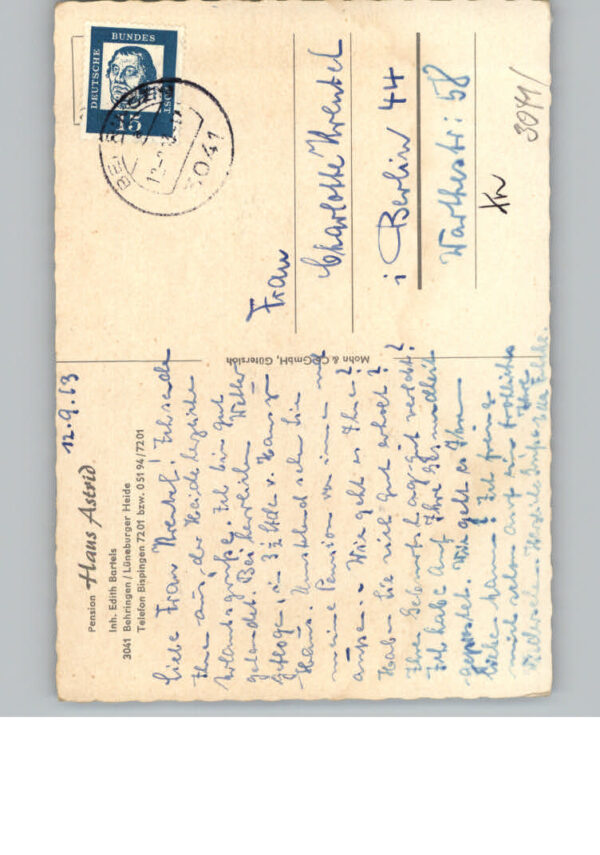 Pension Haus Astrid
Inh. Edith Bartels
3041 Behringen / Lüneburger Heide
Telefon Bispingen 7201 bzw. 05194/7201
12.9.63
Liebe Frau Krentel! Ich sende
Ihnen aus der Heide herzliche
Urlaubsgrüße. Ich bin gut
gelandet. Bei herrlichem Wetter
geflogen, in 3 1/2 Std v. Haus z
Haus. Umstehend sehen Sie
meine Pension von innen und
außen. Wie geht es Ihnen?
Haben Sie sich gut erholt?
Ihren Geburtstag gut verlebt?
Ich habe auf Ihre Gesundheit
Wie geht es Ihrem
lieben Mann? Ich freue
mich schon auf ein fröhliches
Wiedersehen. Herzliche Grüße Ihre
DEUTSCHE BUNDESPOST
15
3041
Mohn & Co GmbH, Gütersloh
Frau
Charlotte Krentel
1 Berlin 44
Warthestr. 58
3041/